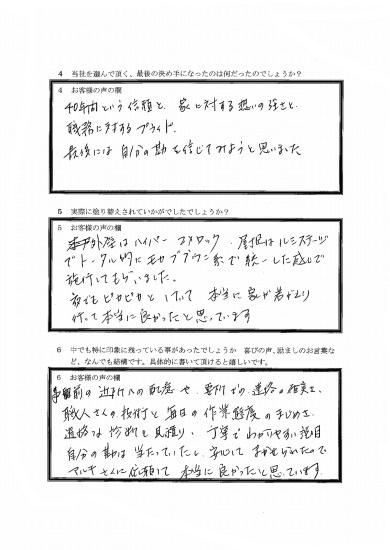 4 当社を選んで頂く、最後の決め手になったのは何だったのでしょうか?
4 お客様の声の欄
40年間という信頼と、家に対する想いの強さと、
職務に対するプライド。
最後には自分の勘を信じてみようと思いました
5 実際に塗り替えされていかがでしたでしょうか?
5 お客様の声の欄
外壁はハイパーユメロック、屋根はルミステージ
でトータル的にモカブラウン系で統一した感じで
施行してもらいました。
夜でもピカピカと 本当に家が若がえり
本当に良かったと思っています
6 中でも特に印象に残っている事があったでしょうか 喜びの声、励ましのお言葉な
ど、なんでも結構です。具体的に書いて頂けると嬉しいです。
6 お客様の声の欄
事前の近所への配慮や、要所での連絡の確実さ、
職人さんの技術と毎日の作業態度のまじめさ、
適格な診断と見積り、丁寧でわかりやすい説明
自分の勘は当たっていたし、安心してまかせられたので
マルキさんに依頼して本当に良かったと思っています。